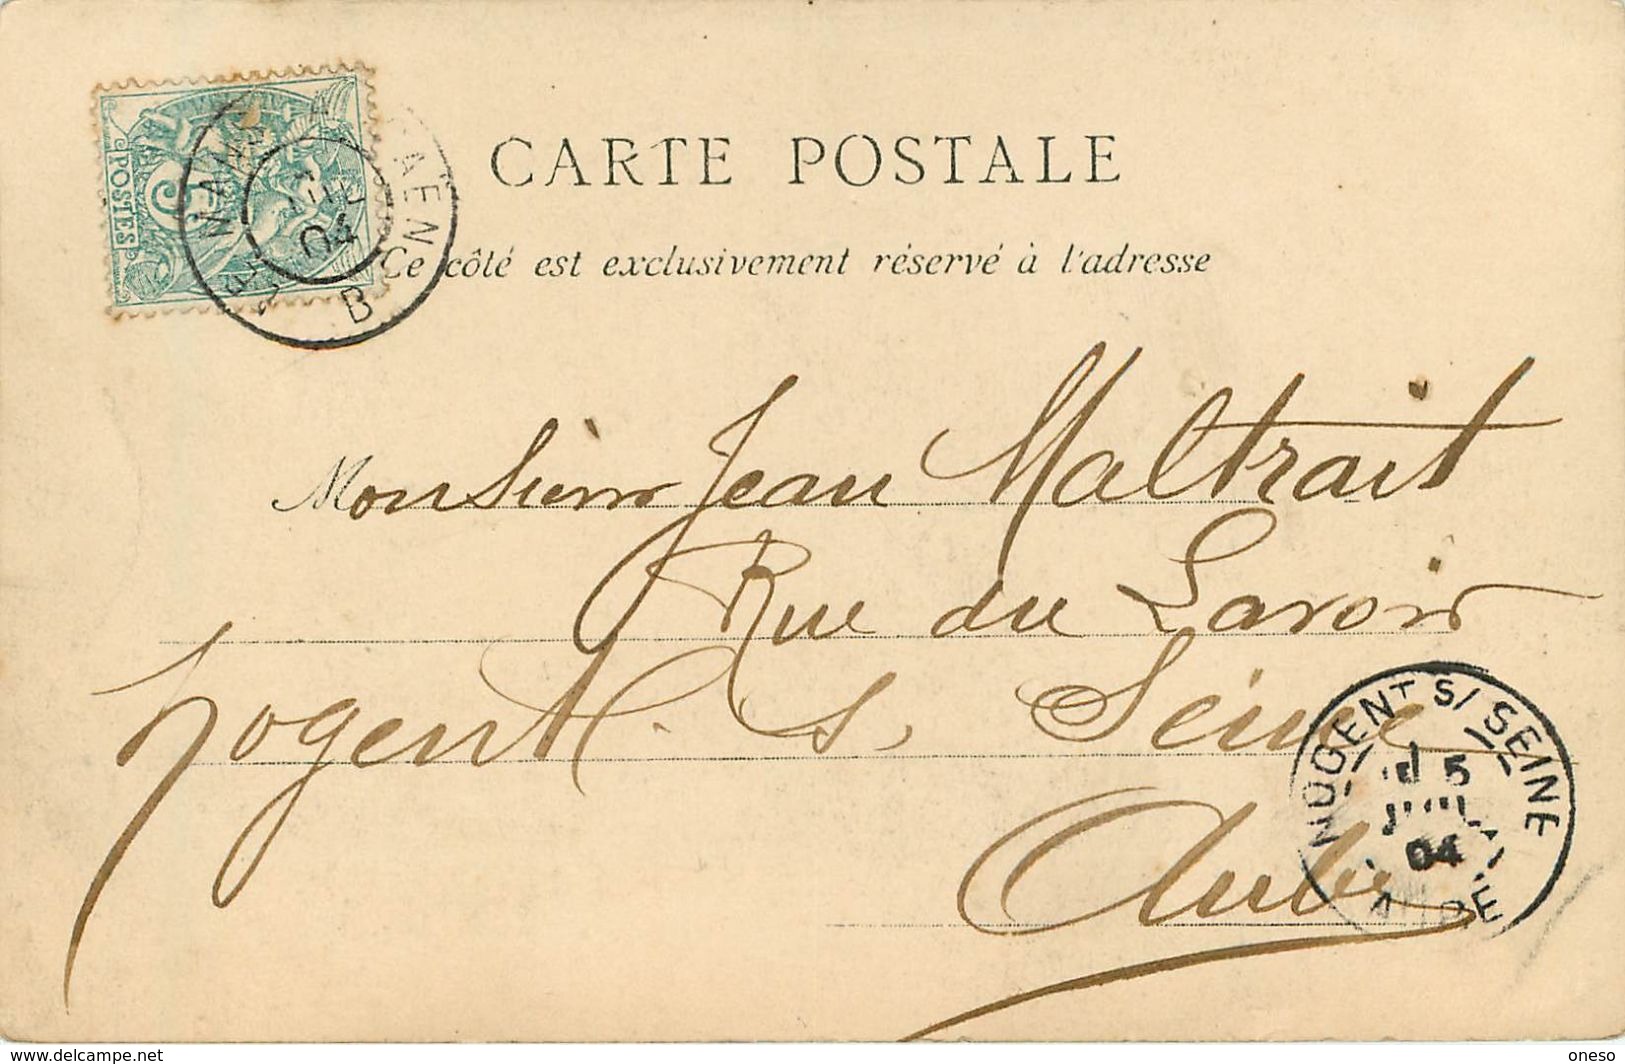 CARTE POSTALE
Ce côté est exclusivement réservé à l'adresse
POSTES
5
CAEN
04
B
Monsieur Jean Maltrait
Rue du Lavoir
Nogent s. Seine
Aube
NOGENT S/ SEINE
5
JUIL
04
AUBE
www.delcampe.net
oneso